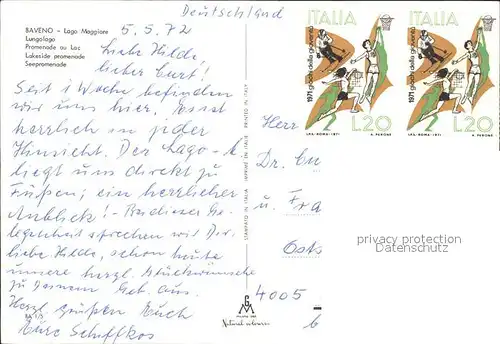 Deutschland
BAVENO - Lago Maggiore
Lungolago
Promenade au Lac
Lakeside promenade
Seepromenade
5.5.72
Liebe Hilde,
lieber Curt!
Seit 1 Woche befinden
wir uns hier. Es ist
herrlich in jeder
Hinsicht. Der Lago-M.
liegt uns direkt zu
Füßen; ein herrlicher
Anblick! - Bei dieser Ge-
legenheit sprechen wir Dir,
liebe Hilde, schon heute
unsere herzl. Glückwünsche
zu Deinem Geb. aus.
Herzl. Grüßen Euch
Eure Schiffkos
STAMPATO IN ITALIA
IMPRIMÉ EN ITALIE
PRINTED IN ITALY
Natural colours
ITALIA
1971 giochi della gioventù
L.20
I.P.S.-ROMA-1971
A. PERONE
ITALIA
1971 giochi della gioventù
L.20
I.P.S.-ROMA-1971
A. PERONE
Herr
Dr. Cu
u. Fra
Osts
4005
privacy protection
OLDTHING.COM